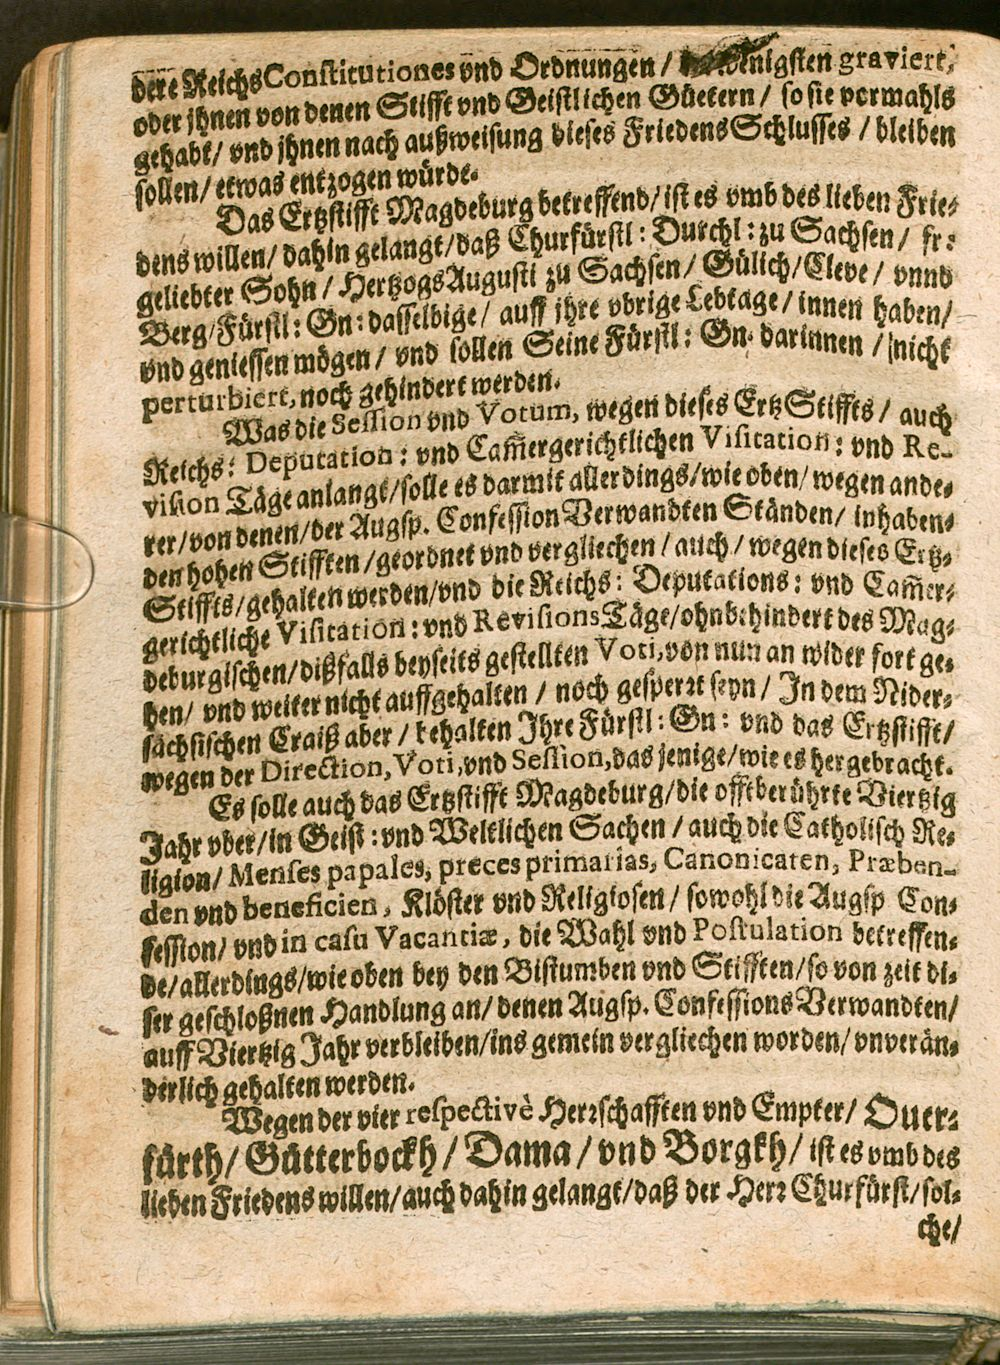 dere ReichsConstitutiones vnd Ordnungen / wenigsten graviert,
oder jhnen von denen Stifft vnd Geistlichen Güetern / so sie vormahls
gehabt / vnd jhnen nach außweisung dieses FriedensSchlusses / bleiben
sollen / etwas entzogen würde.
Das Ertzstifft Magdeburg betreffend / ist es vmb des lieben Frie-
dens willen / dahin gelangt / daß Churfürstl: Durchl: zu Sachsen / fr:
geliebter Sohn / Hertzogs Augusti zu Sachsen / Gülich / Cleve / vnnd
Berg / Fürstl: Gn: dasselbige / auff jhre vbrige Lebtage / innen haben /
vnd geniessen mögen / vnd sollen Seine Fürstl: Gn. darinnen / nicht
perturbiert, noch gehindert werden.
Was die Session vnd Votum, wegen dieses ErtzStiffts / auch
Reichs: Deputation: vnd Cam̃ergerichtlichen Visitation: vnd Re-
vision Täge anlangt / solle es darmit allerdings / wie oben / wegen ande-
rer / von denen / der Augsp. Confession Verwandten Ständen / inhaben-
den hohen Stifften / geordnet vnd vergliechen / auch / wegen dieses Ertz-
Stiffts / gehalten werden / vnd die Reichs: Deputations: vnd Cam̃er-
gerichtliche Visitation: vnd RevisionsTäge / ohnbehindert des Mag-
deburgischen / dißfalls beyseits gestellten Voti, von nun an wider fort ge-
hen / vnd weiter nicht auffgehalten / noch gesperꝛt seyn / In dem Nider-
sächsischen Craiß aber / behalten Ihre Fürstl: Gn: vnd das Ertzstifft /
wegen der Direction, Voti, vnd Session, das jenige / wie es hergebracht.
Es solle auch das Ertzstifft Magdeburg / die offtberührte Viertzig
Jahr vber / in Geist: vnd Weltlichen Sachen / auch die Catholisch Re-
ligion / Menses papales, preces primarias, Canonicaten, Præben-
den vnd beneficien, Klöster vnd Religiosen / sowohl die Augsp Con-
fession / vnd in casu Vacantiæ, die Wahl vnd Postulation betreffen-
de / allerdings / wie oben bey den Bistumben vnd Stifften / so von zeit di-
ser geschloßnen Handlung an / denen Augsp. Confessions Verwandten /
auff Viertzig Jahr verbleiben / ins gemein vergliechen worden / vnverän-
derlich gehalten werden.
Wegen der vier respectivè Herꝛschafften vnd Empter / Quer-
fürth / Gütterbockh / Dama / vnd Borgkh / ist es vmb des
lieben Friedens willen / auch dahin gelangt / daß der Herꝛ Churfürst / sol-
che /